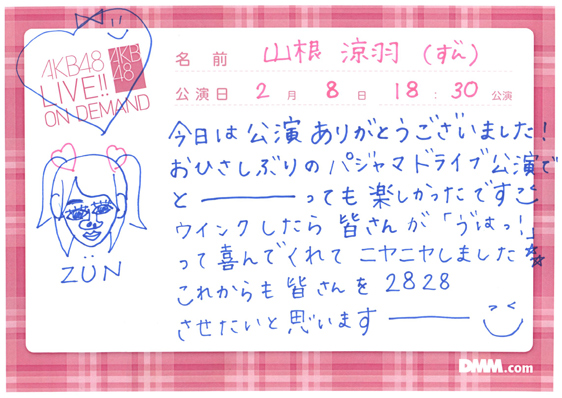 AKB48
LIVE!!
ON DEMAND
AKB
48
名前 山根 涼羽 (ずん)
公演日 2月 8日 18:30 公演
今日は公演ありがとうございました!
おひさしぶりのパジャマドライブ公演で
と―――っても楽しかったです
ウインクしたら皆さんが「うはっ!」
って喜んでくれてニヤニヤしました
これからも皆さんを2828
させたいと思います―――
ZÜN
DMM.com